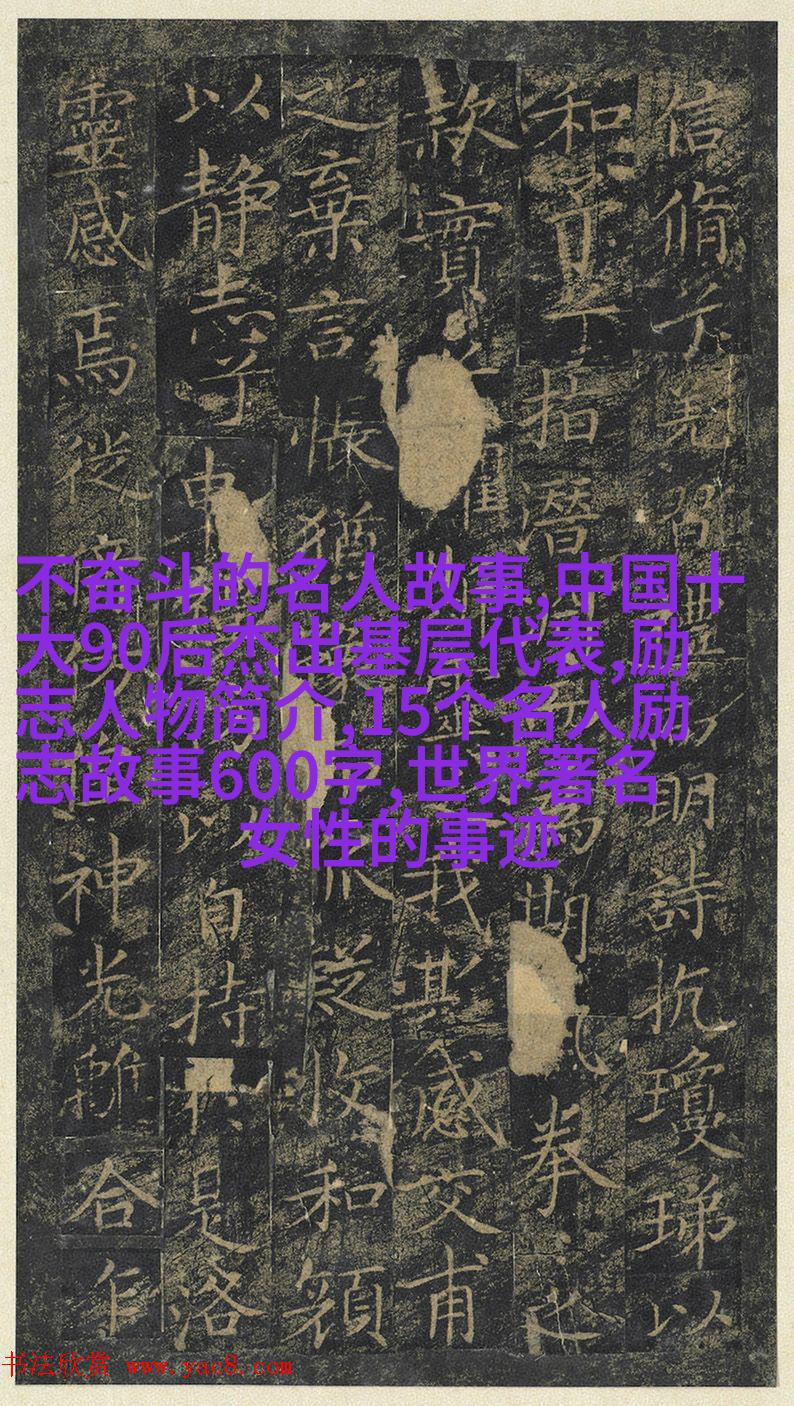 信脩兮羌習禮明詩抗瓊珶以
和予兮指潛為期拳之
款實之我感交甫
之棄言悵猶收和顏
以静志兮申以自持是洛
靈感焉徙神光離合乍
不奋斗的名人故事,中国十
大90后杰出基层代表,励
志人物简介,15个名人励
志故事600字,世界著名
女性的事迹
书法欣赏 www.yac8.com